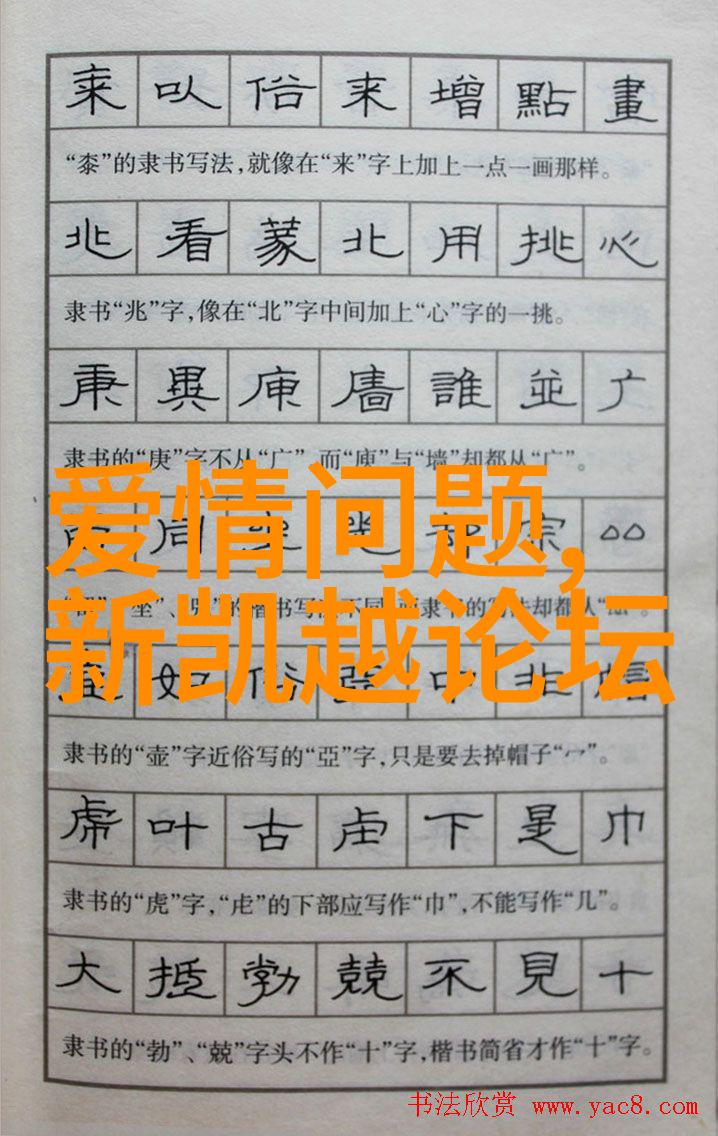 以俗来增點畫
的隶书写法,就像在“来”字上加上一点一画那样。
兆看蒙北用挑心
隶书“兆”字,像在“北”字中间加上“心”字的一挑。
庚異廧誰並广
隶书的“庚”字不从“广” 而“庾”与“墙”却都从“广”。
爱情问题,
同 却宗
“坐”、 的楷书写法不同 隶书的写法却都从
新凯越论坛
如俗亞中非帽
隶书的“壶”字近俗写的“亞”字,只是要去掉帽子“宀”。
叶古下是巾
隶书的“虎”字,“虍”的下部应写作“巾”,不能写作“几”。
大抵勃兢不見十
隶书的“勃”、“兢”字头不作“十”字,楷书简省才作“十”字。
书法欣赏 www.yac8.com